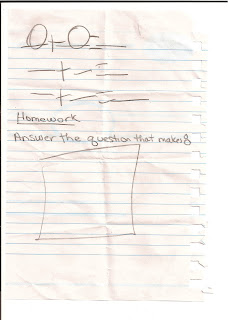 O + O = __
__ + __ = __
__ + __ = __
Homework
Answer the question that makes 8